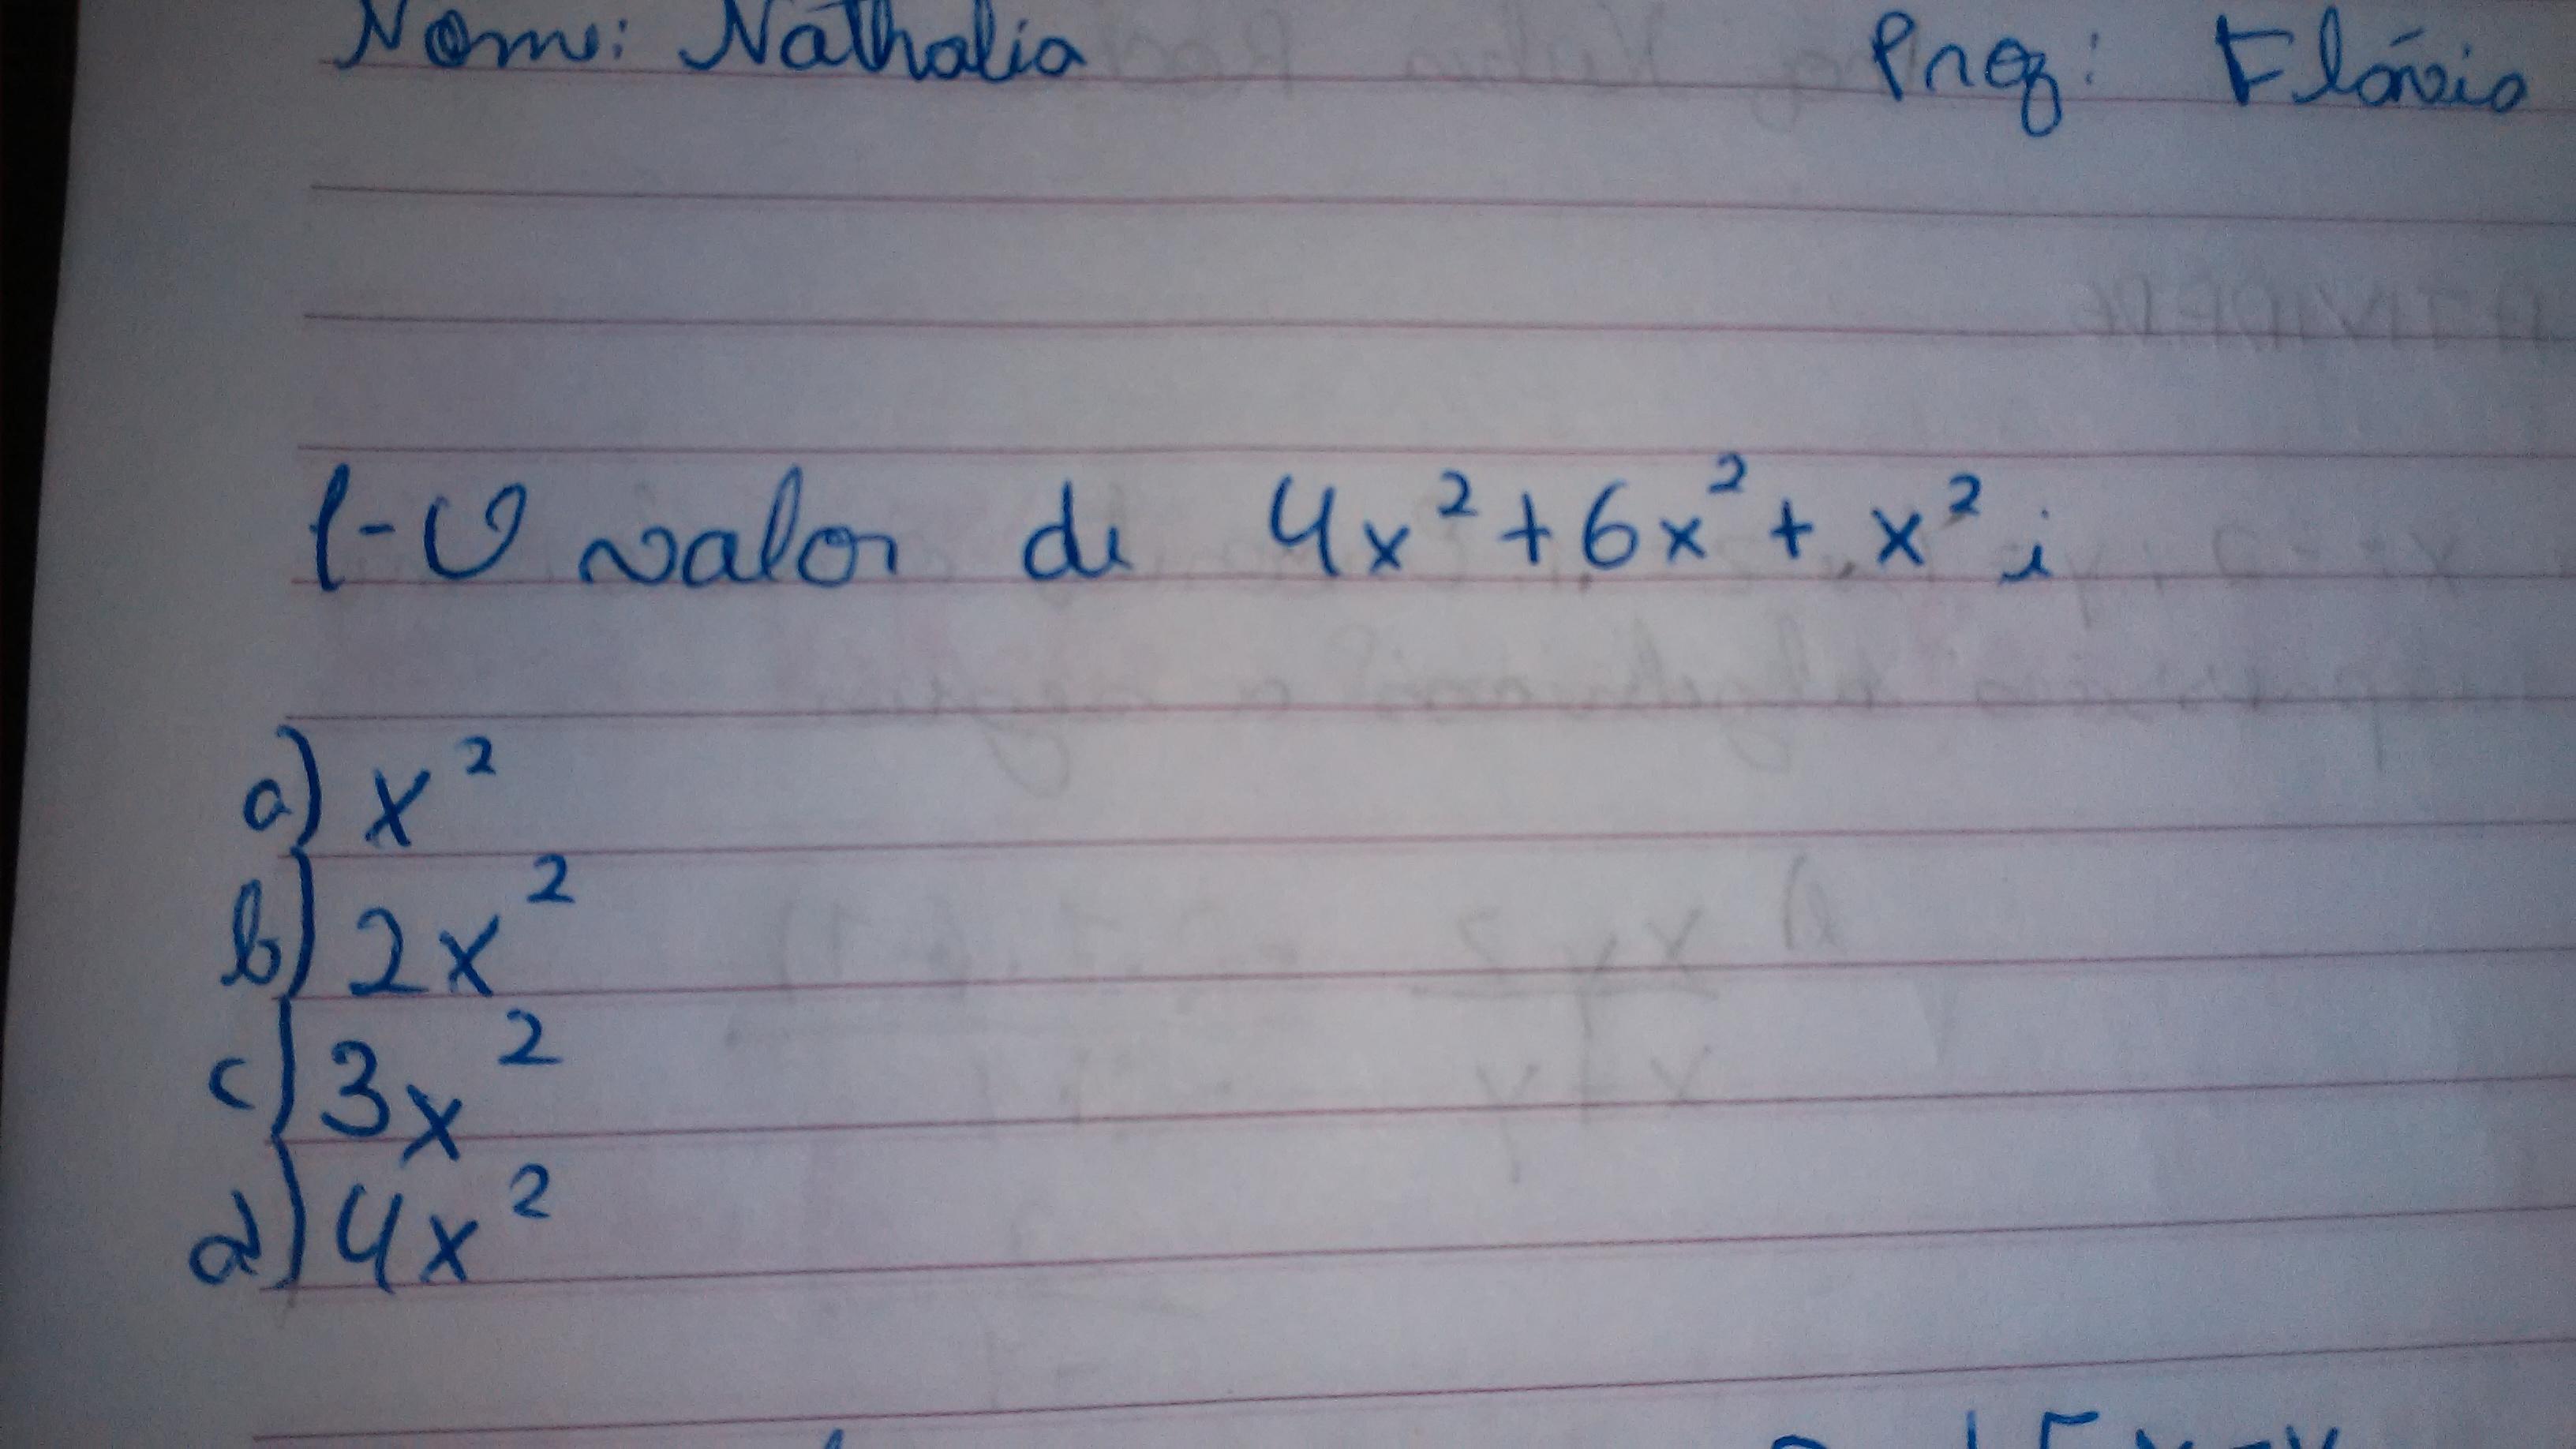 Nome: Nathalia Prof: Flávio
1-O valor de 4x²+6x²+x² é
a) x²
b) 2x²
c) 3x²
d) 4x²